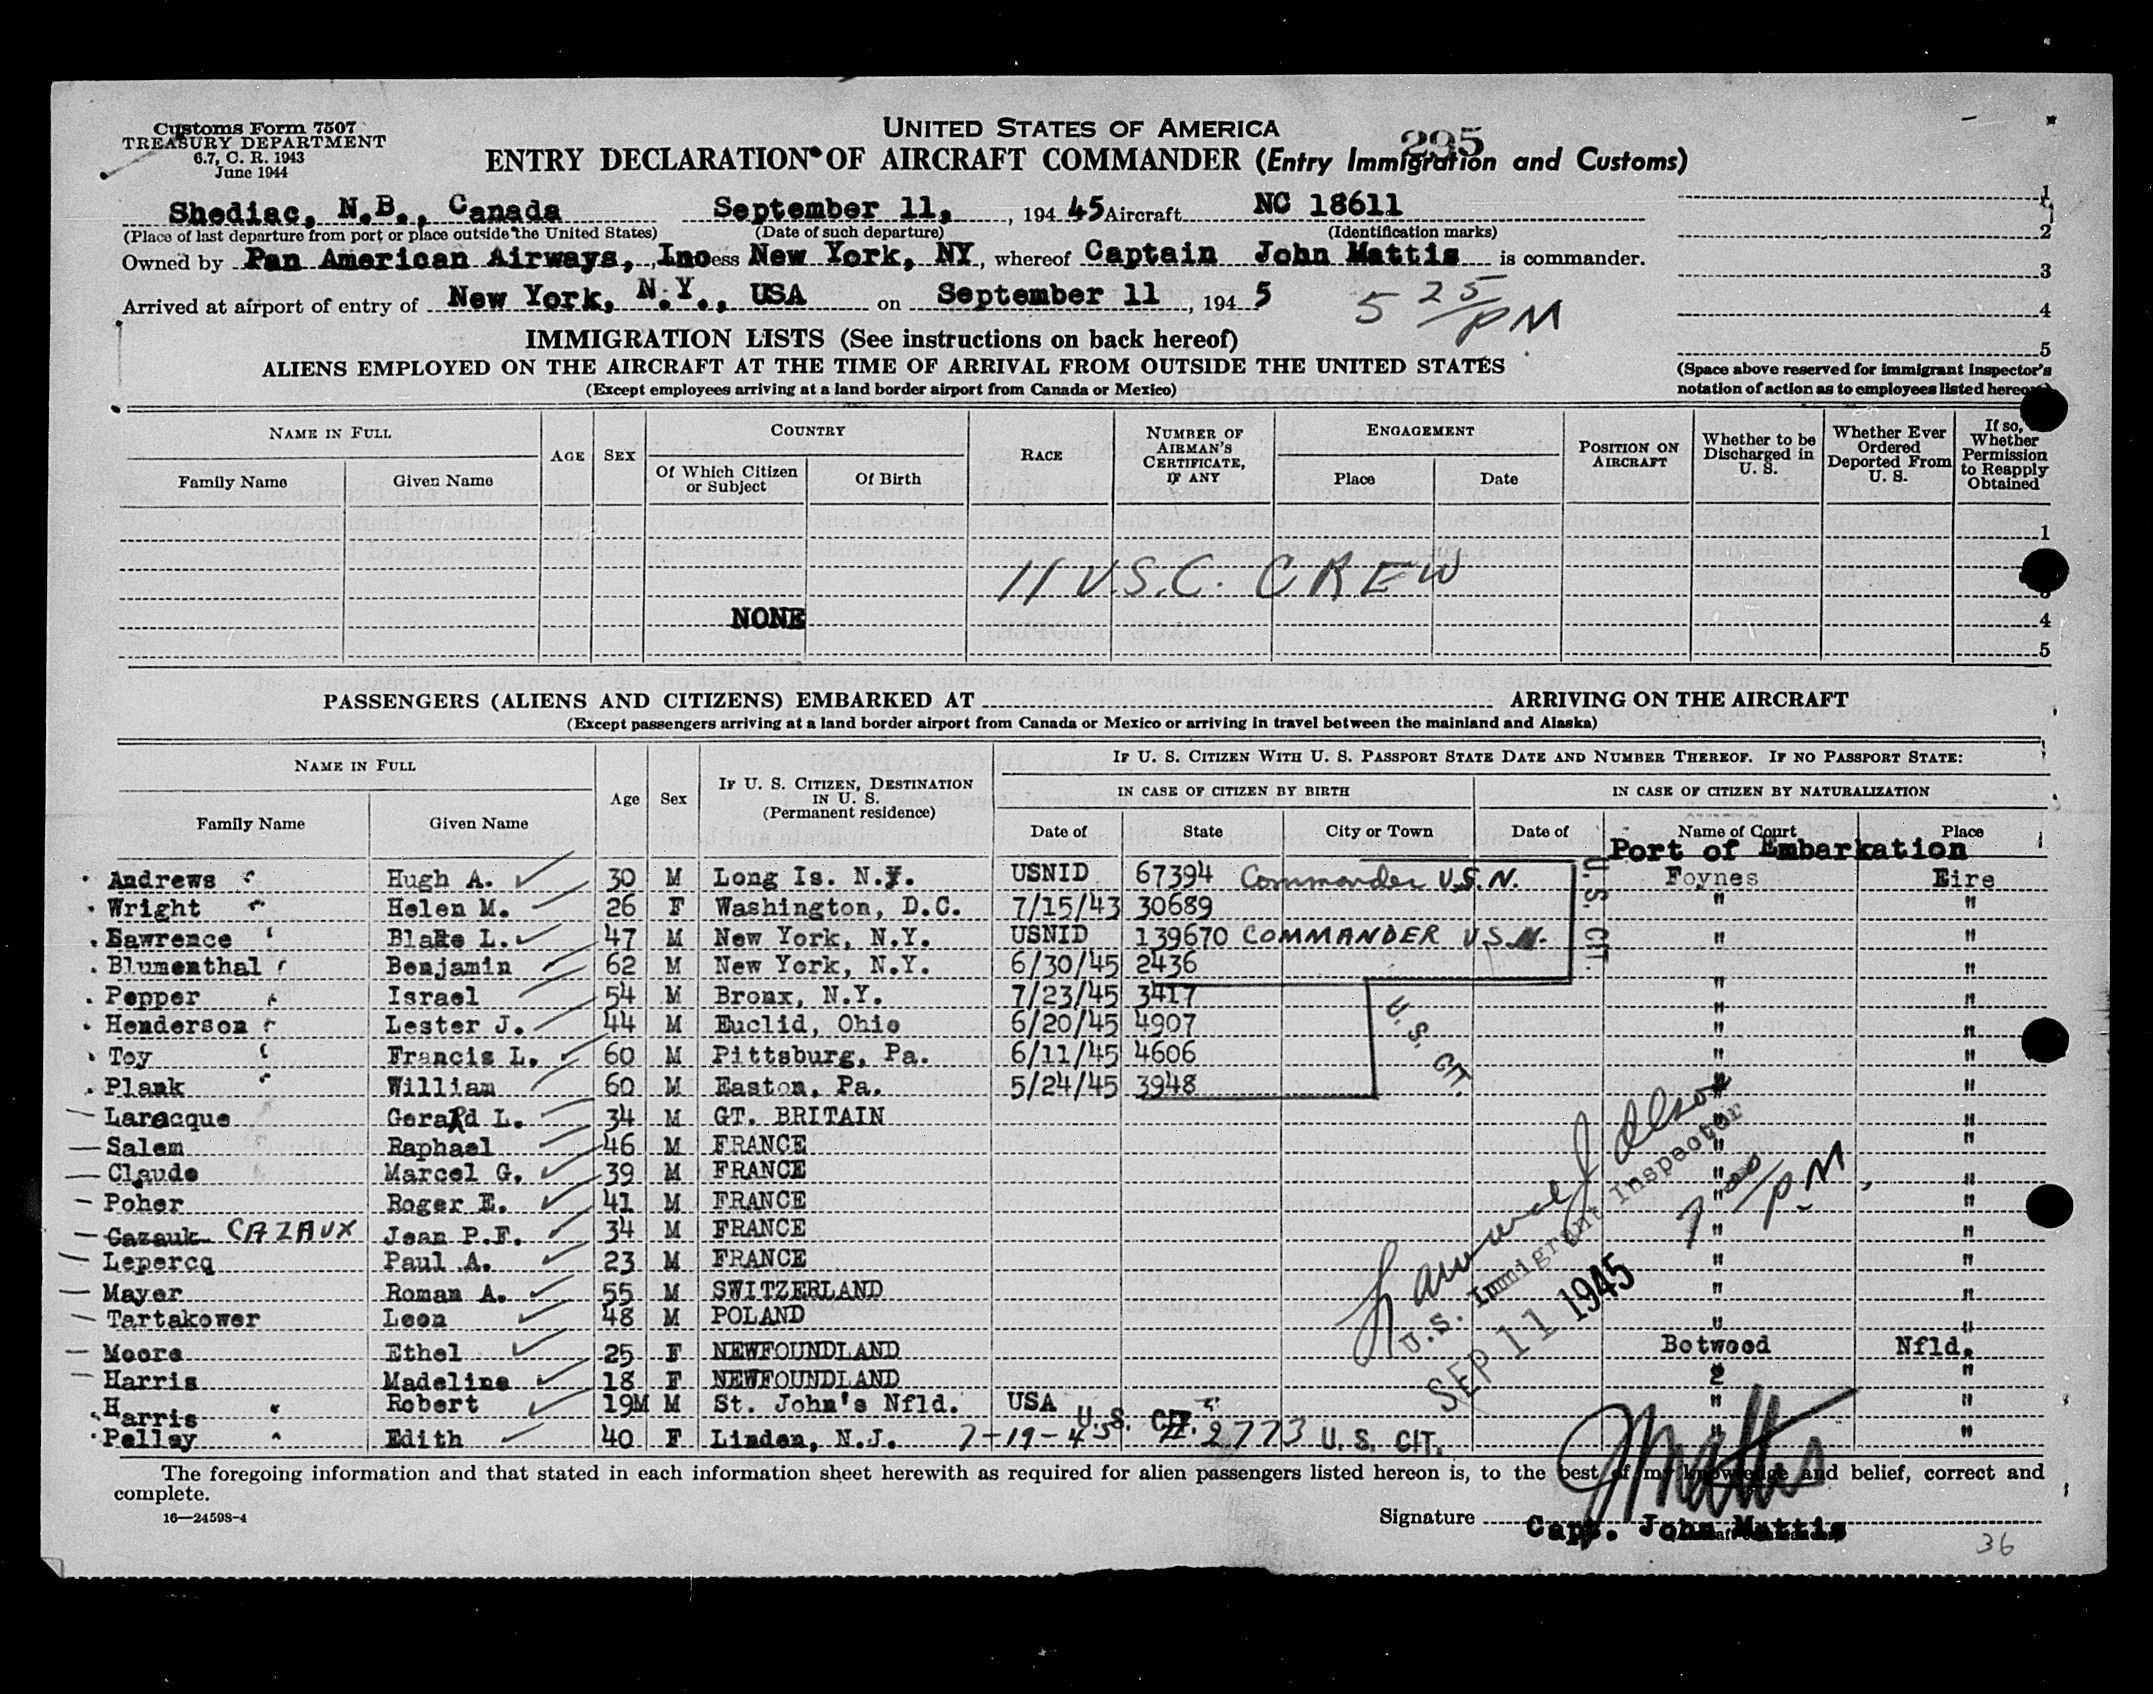 Customs Form 7507
TREASURY DEPARTMENT
6.7, C. R. 1943
June 1944
UNITED STATES OF AMERICA
295
ENTRY DECLARATION OF AIRCRAFT COMMANDER (Entry Immigration and Customs)
Shediac, N.B., Canada September 11, , 194 45 Aircraft NC 18611 1
(Place of last departure from port or place outside the United States) (Date of such departure) (Identification marks) 2
Owned by Pan American Airways, Inc ess New York, NY, whereof Captain John Mattis is commander. 3
Arrived at airport of entry of New York, N.Y., USA on September 11, 194 5 5 25/PM 4
IMMIGRATION LISTS (See instructions on back hereof) 5
ALIENS EMPLOYED ON THE AIRCRAFT AT THE TIME OF ARRIVAL FROM OUTSIDE THE UNITED STATES
(Space above reserved for immigrant inspector's
(Except employees arriving at a land border airport from Canada or Mexico)
notation of action as to employees listed hereon)
NAME IN FULL AGE SEX COUNTRY RACE NUMBER OF AIRMAN'S CERTIFICATE, IF ANY ENGAGEMENT POSITION ON AIRCRAFT Whether to be Discharged in U. S. Whether Ever Ordered Deported From U. S. If so, Whether Permission to Reapply Obtained
Family Name Given Name Of Which Citizen or Subject Of Birth Place Date
1
11 U.S.C. CREW
3
NONE 4
5
PASSENGERS (ALIENS AND CITIZENS) EMBARKED AT ARRIVING ON THE AIRCRAFT
(Except passengers arriving at a land border airport from Canada or Mexico or arriving in travel between the mainland and Alaska)
NAME IN FULL Age Sex IF U. S. CITIZEN, DESTINATION IN U. S. (Permanent residence) IF U. S. CITIZEN WITH U. S. PASSPORT STATE DATE AND NUMBER THEREOF. IF NO PASSPORT STATE:
IN CASE OF CITIZEN BY BIRTH IN CASE OF CITIZEN BY NATURALIZATION
Family Name Given Name Date of State City or Town Date of Name of Court Place
Port of Embarkation
Andrews Hugh A. 30 M Long Is. N.Y. USNID 67394 Commander U.S.N. Foynes Eire
Wright Helen M. 26 F Washington, D.C. 7/15/43 30689 " "
Lawrence Blake L. 47 M New York, N.Y. USNID 139670 COMMANDER U.S.N. " "
U. S. CIT.
Blumenthal Benjamin 62 M New York, N.Y. 6/30/45 2436 "
Pepper Israel 54 M Bronx, N.Y. 7/23/45 3417 " "
Henderson Lester J. 44 M Euclid, Ohio 6/20/45 4907 " "
Toy Francis L. 60 M Pittsburg, Pa. 6/11/45 4606 " "
U. S. CIT.
Plank William 60 M Easton, Pa. 5/24/45 3948 " "
Laracque Gerard L. 34 M GT. BRITAIN " "
Salem Raphael 46 M FRANCE " "
Claude Marcel G. 39 M FRANCE " "
Poher Roger E. 41 M FRANCE " "
Cazauk CAZAUX Jean P.F. 34 M FRANCE " "
Lepercq Paul A. 23 M FRANCE " "
Mayer Roman A. 55 M SWITZERLAND " "
Tartakower Leon 48 M POLAND " "
U.S. Immigrant Inspector
7 00/PM
SEP 11 1945
Moore Ethel 25 F NEWFOUNDLAND Botwood Nfld.
Harris Madeline 18 F NEWFOUNDLAND " "
Harris Robert 19M M St. John's Nfld. USA U. S. CIT. " "
Pelley Edith 40 F Linden, N.J. 7-19-45 2773 U. S. CIT. " "
The foregoing information and that stated in each information sheet herewith as required for alien passengers listed hereon is, to the best of my knowledge and belief, correct and
complete.
16—24598-4
Signature JMattis
Capt. John Mattis
36